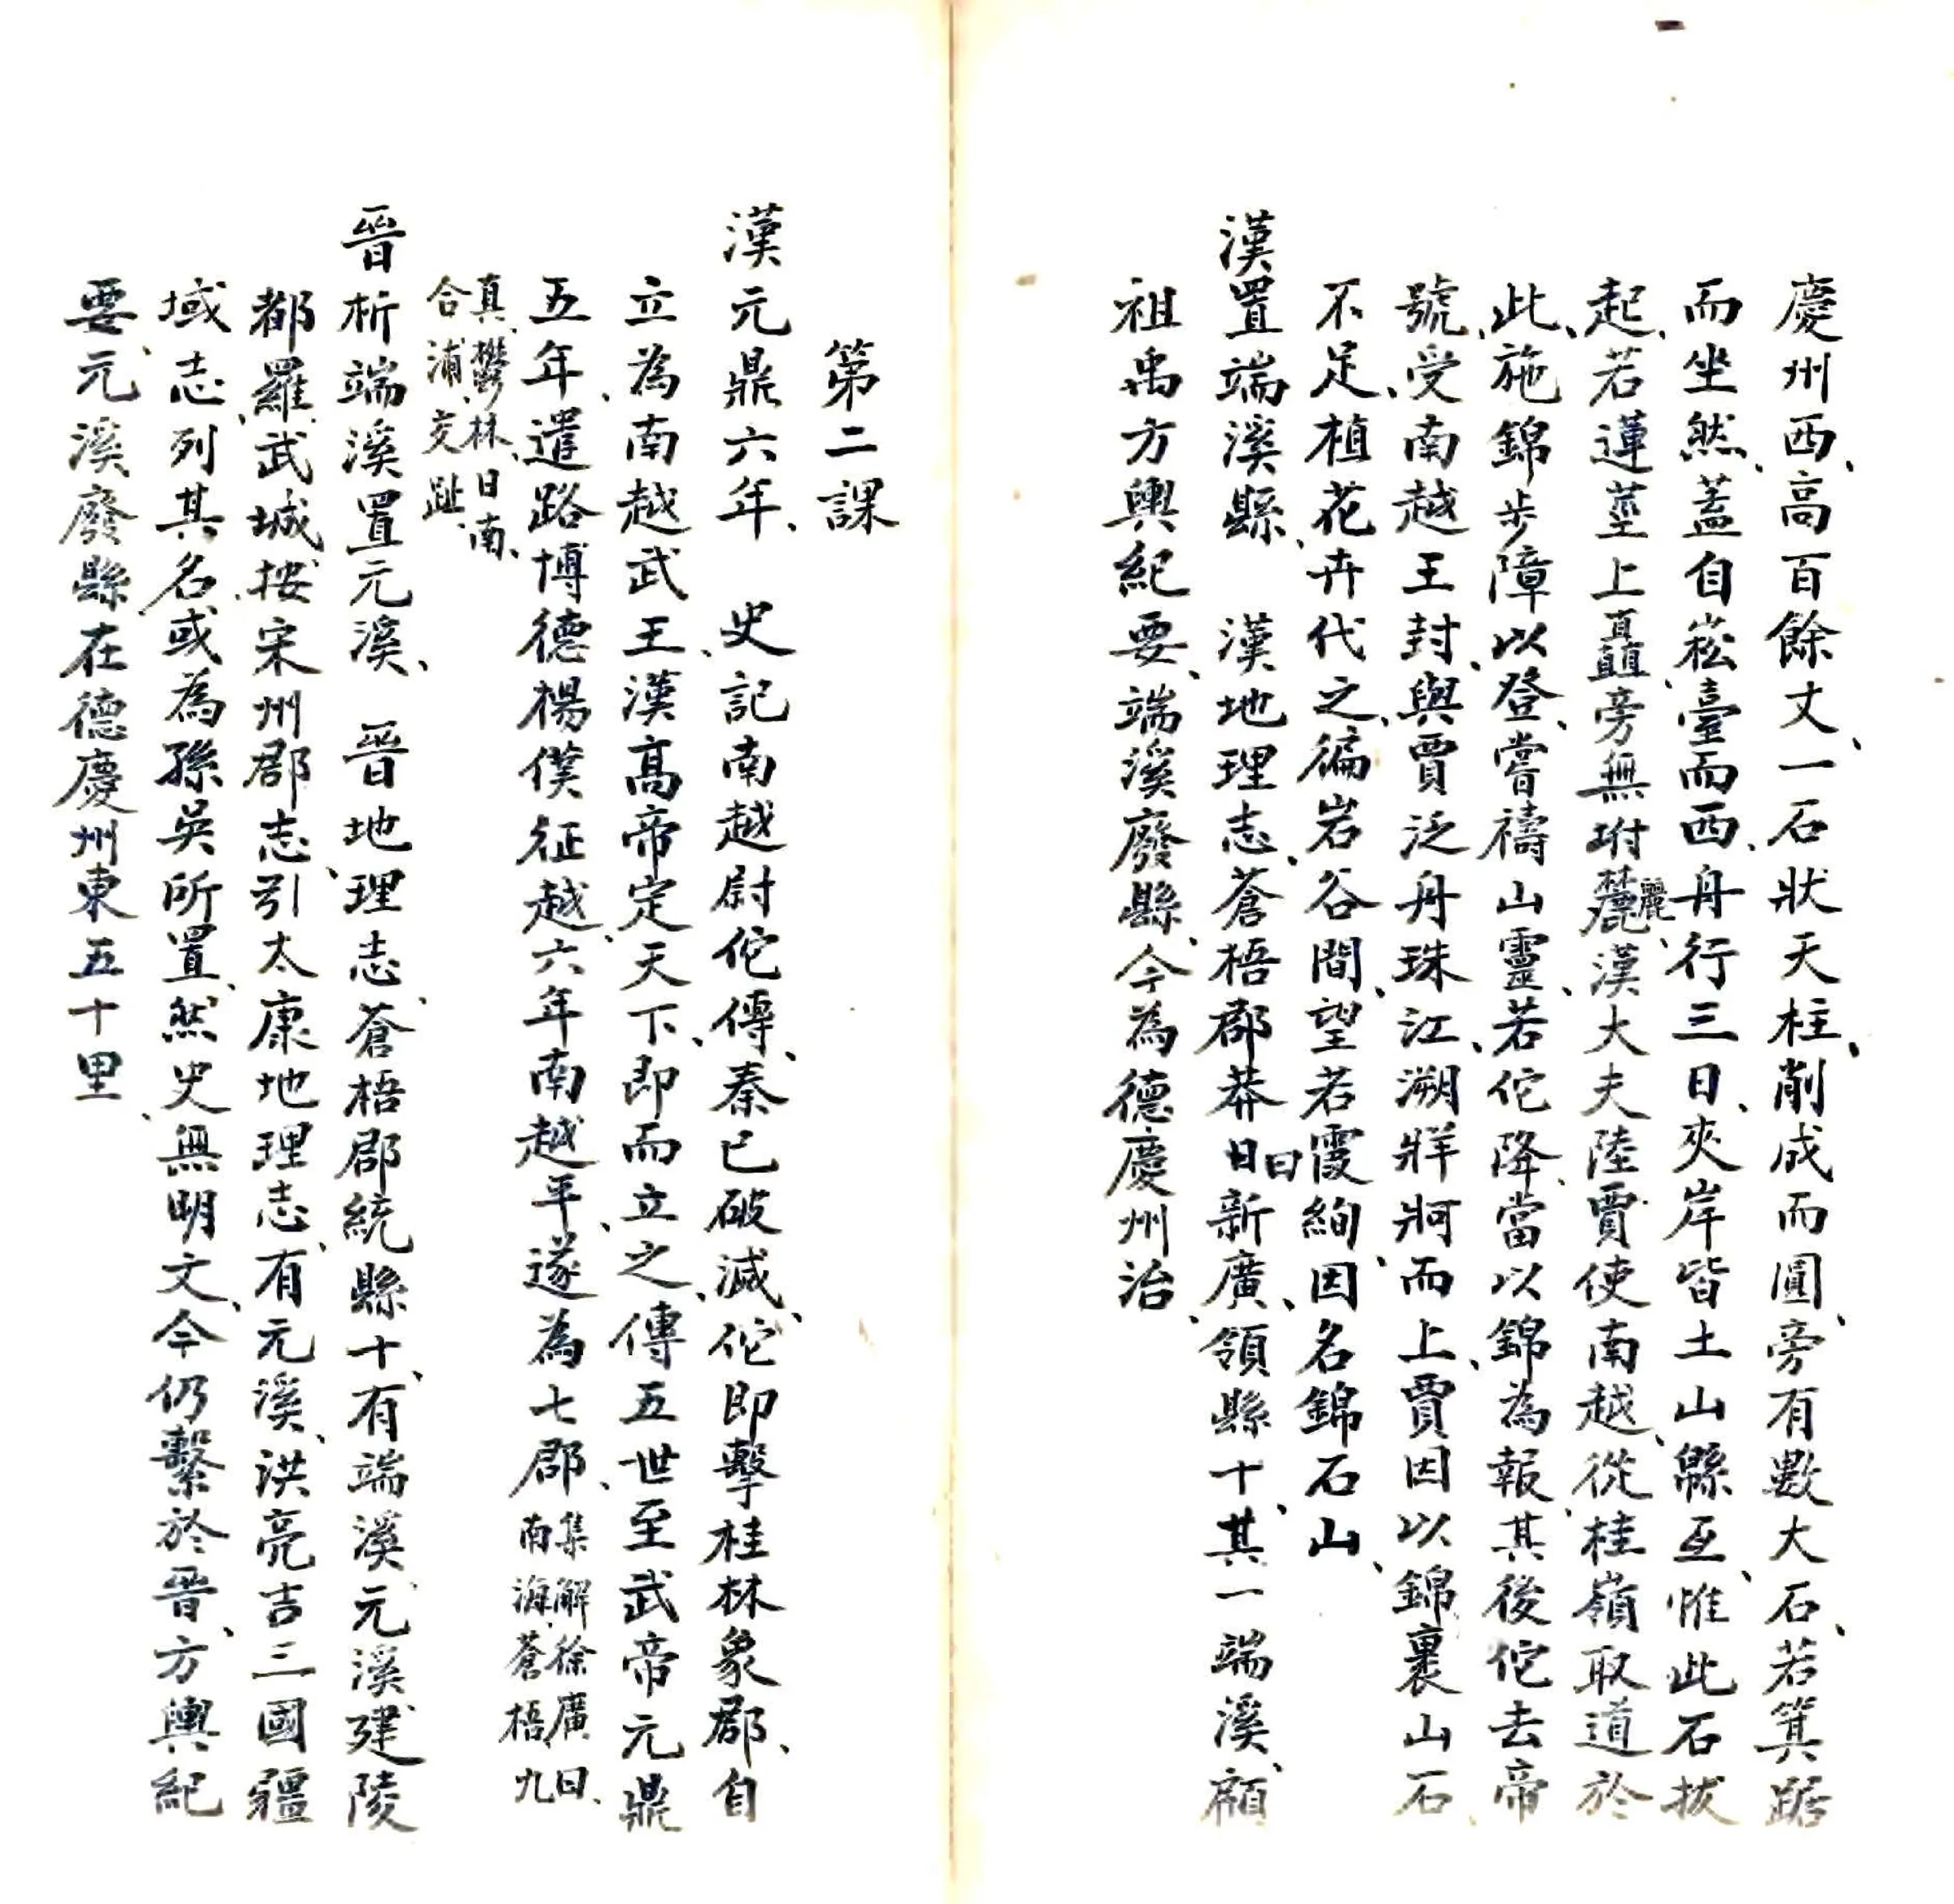 慶州西、高百餘丈、一石狀天柱、削成而圓、旁有數大石、若箕踞
而坐然、蓋自崧臺而西、舟行三日、夾岸皆土山緜亙、惟此石拔
起、若蓮莖上矗、旁無坿麓麗、漢大夫陸賈使南越、從桂嶺取道於
此、施錦步障以登、嘗禱山靈、若佗降、當以錦為報、其後佗去帝
號、受南越王封、與賈泛舟珠江、溯牂牁而上、賈因以錦裹山石、
不足、植花卉代之、徧岩谷間、望若霞絢、因名錦石山、
漢置端溪縣、 漢地理志、蒼梧郡莽日曰新廣、領縣十、其一端溪、顧
祖禹方輿紀要、端溪廢縣、今為德慶州治、
第二課
漢元鼎六年、 史記南越尉佗傳、秦已破滅、佗即擊桂林象郡、自
立為南越武王、漢高帝定天下、即而立之、傳五世至武帝元鼎
五年、遣路博德楊僕征越、六年南越平、遂為七郡、集解徐廣曰、南海、蒼梧、九
真、鬱林、日南、合浦、交趾、
晉析端溪置元溪、 晉地理志、蒼梧郡統縣十、有端溪、元溪、建陵
都羅、武城、按宋州郡志、引太康地理志、有元溪、洪亮吉三國疆
域志、列其名、或為孫吳所置、然史無明文、今仍繫於晉、方輿紀
要、元溪廢縣在德慶州東五十里、